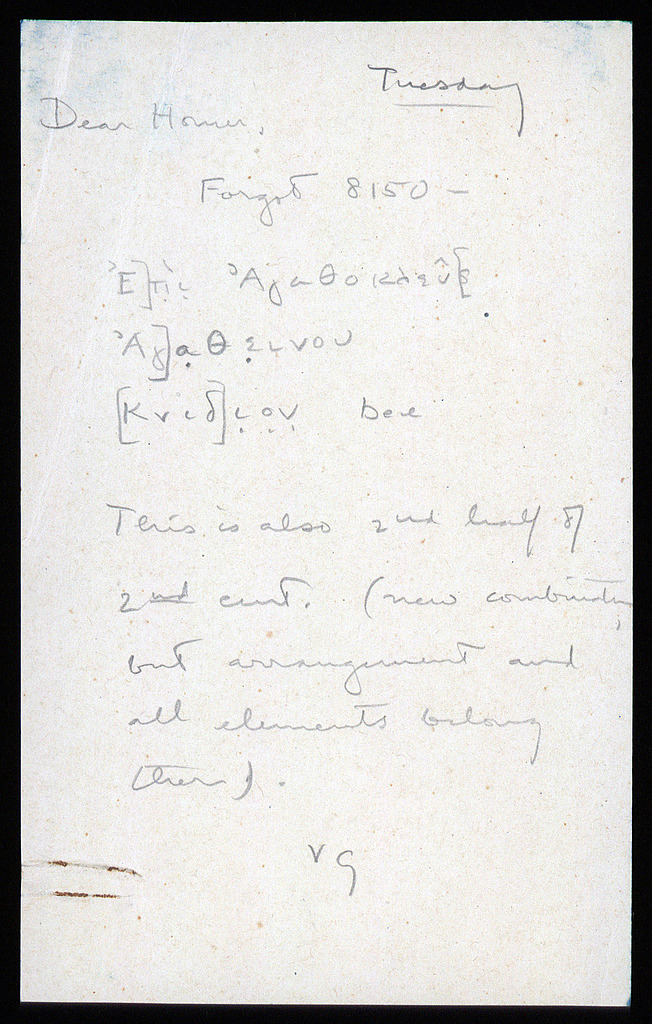 Tuesday
Dear Homer,
Forgot 8150 –
Ἐ]π̣ὶ̣ Ἀγαθοκλεῦς
Ἀγ]α̣θε̣ινου
[Κνιδ]ι̣ο̣ν̣ bee
This is also 2nd half of
2nd cent. (new combination,
but arrangement and
all elements belong
there).
VG